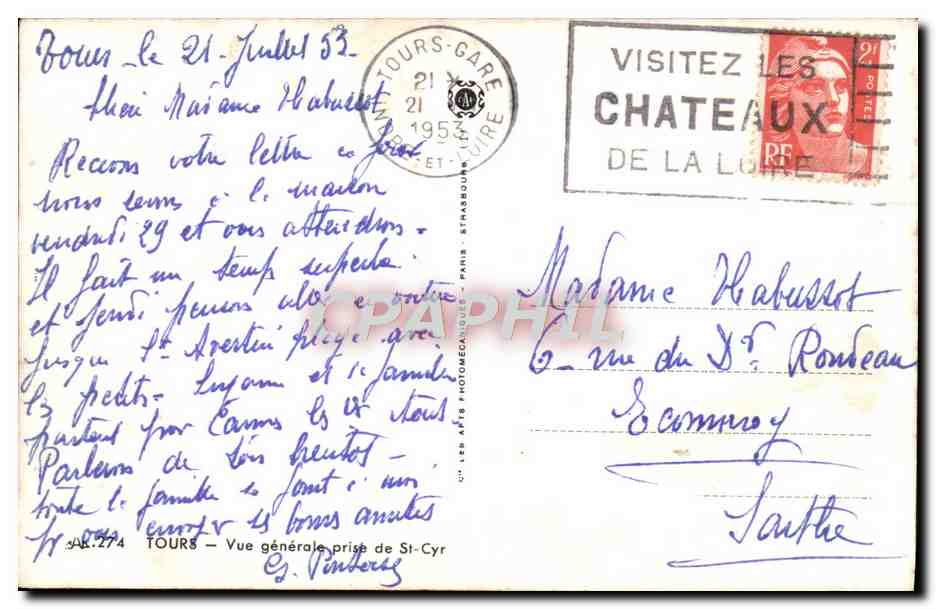 Tours le 21 Juillet 53
Chère Madame Habussot
Recevons votre lettre ce jour
nous serons à la maison
vendredi 29 et vous attendrons =
Il fait un temps superbe.
et jeudi pensons aller en voiture
jusque St Avertin plage avec
les petits - et la famille
partent pour Cannes les
Parlerons de bientôt -
toute la famille se joint à moi
pr vous envoyer ses bonnes amitiés
AR.274 TOURS - Vue générale prise de St-Cyr
TOURS-GARE
21
21
1953
INDRE-ET-LOIRE
CIE LES ARTS PHOTOMÉCANIQUES - PARIS - STRASBOURG
VISITEZ LES
CHATEAUX
DE LA LOIRE
2F
POSTES
RF
CPAPHIL
Madame Habussot
6 rue du Dr. Rondeau
Ecommoy
Sarthe